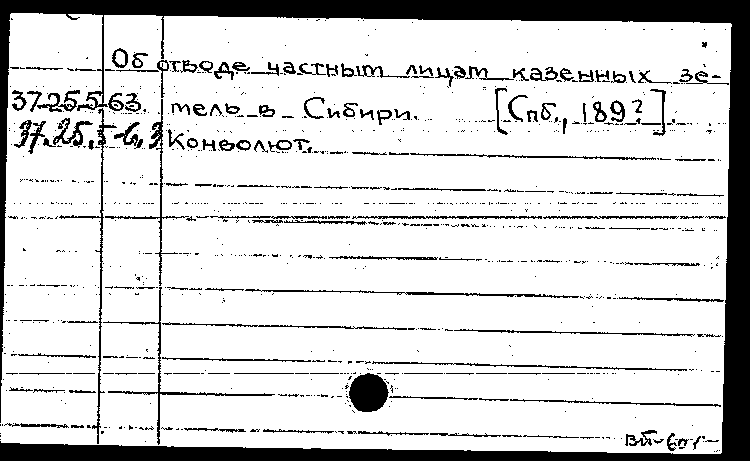 Об отводе частным лицам казенных зе-
37.25.5.63. мель в Сибири. [Спб., 189?].
37.25.5-6,3 Конволют.